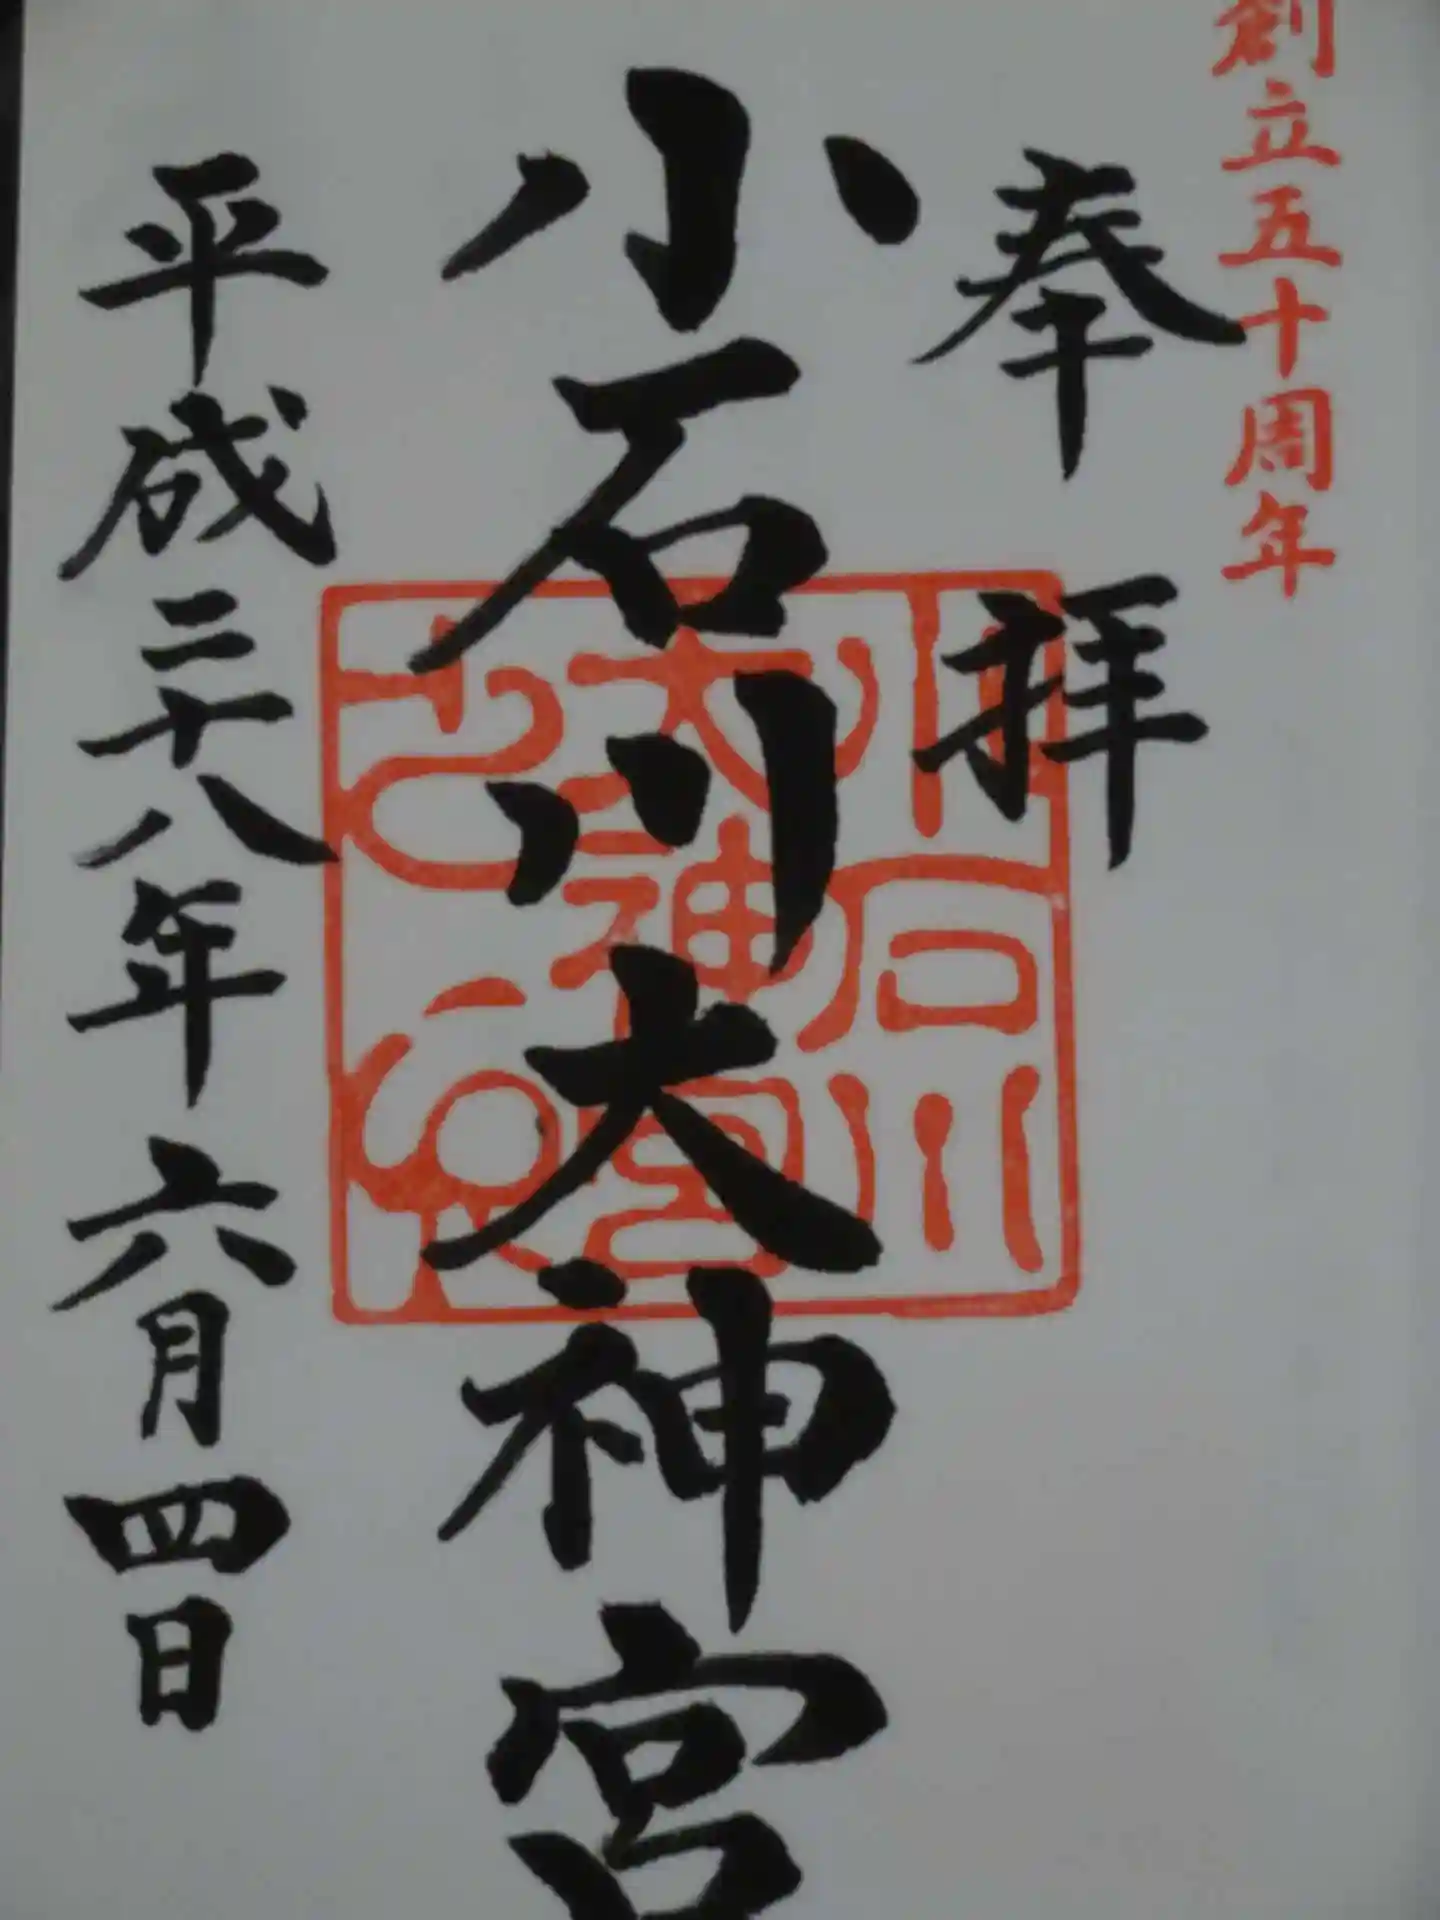 創立五十周年
奉拝
小石川大神宮
平成二十八年六月四日
小石川
大神宮
之印